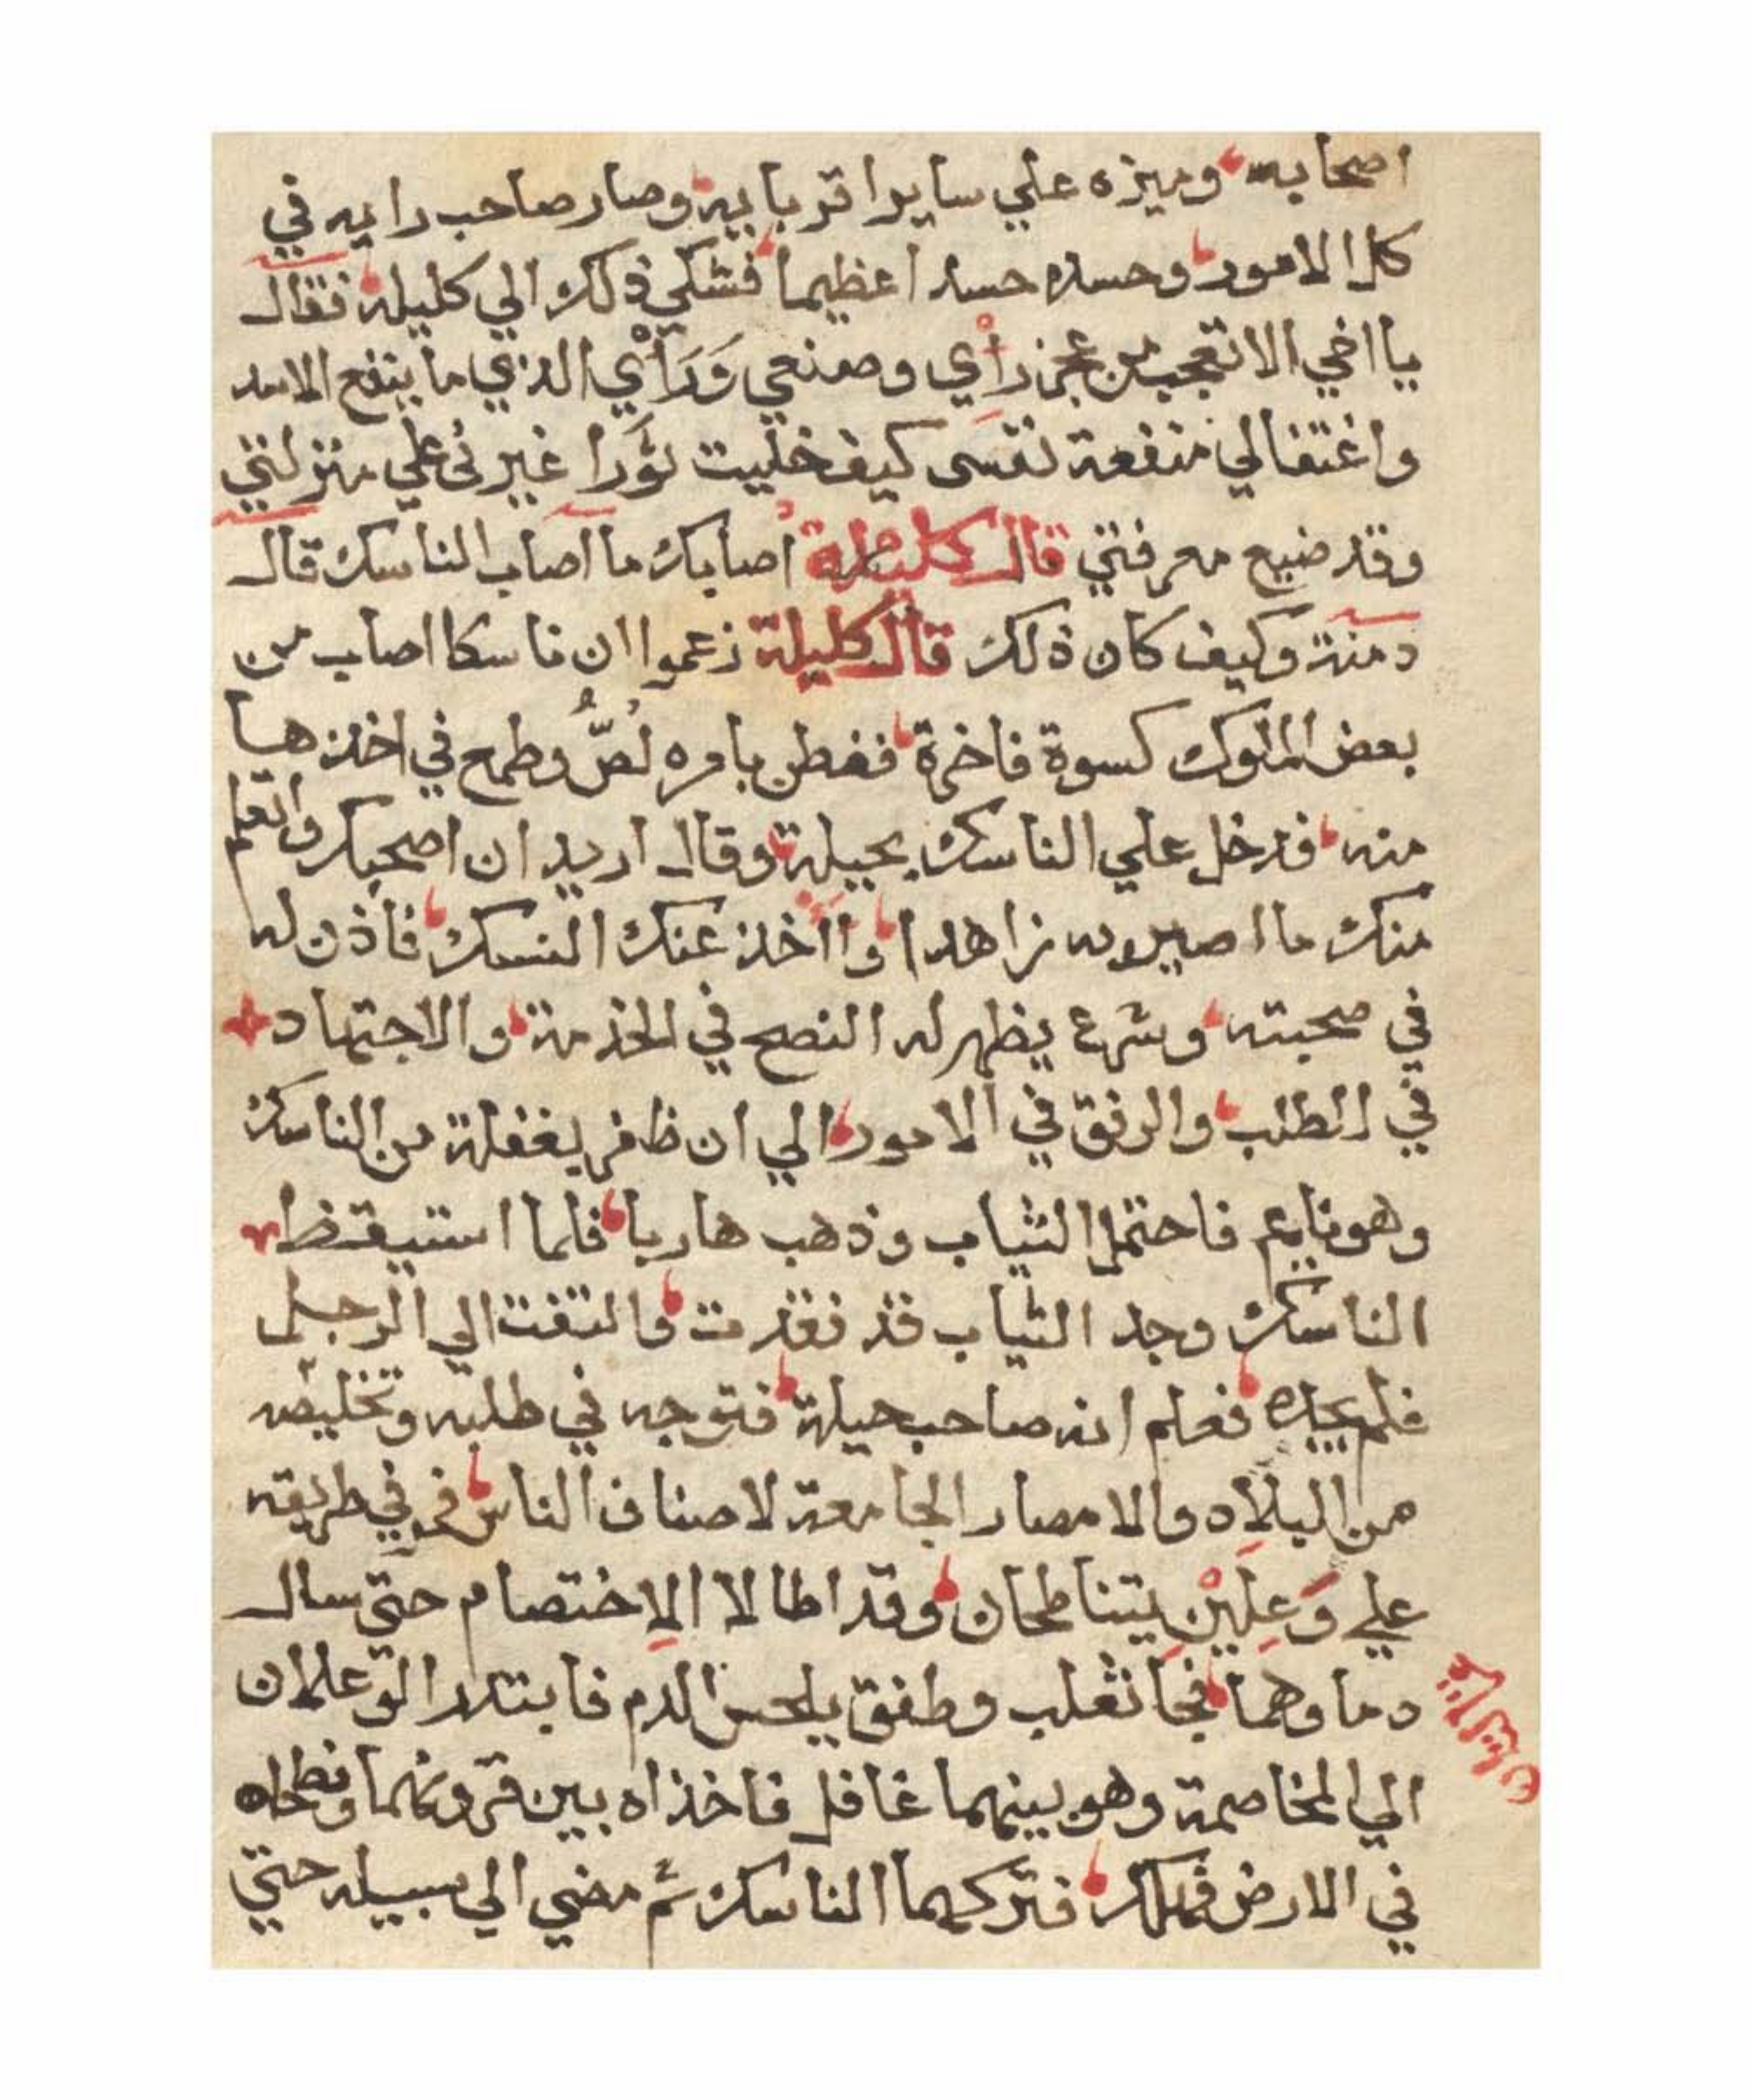 اصحابه وميزه علي ساير اقربايه وصار صاحب رايه في
كل الامور وحسده حسدا عظيما فشكي ذلك الي كليله فقال
يا اخي الا تعجب من عجز رأْي وصنعي وَرَأْي الذي ما ينفع الاسد
واغتفالي منفعة نفسى كيف خليت ثورا غيرنى علي منزلتي
وقد ضيع معرفتي قال كليلة أصابك ما اصاب الناسك قال
دمنة وكيف كان ذلك قال كليلة زعموا ان ناسكا اصاب من
بعض الملوك كسوة فاخرة ففطن بامره لُصٌّ وطمع في اخذها
منه فدخل علي الناسك بحيلة وقال اريد ان اصحبك واتعلم
منك ما اصير به زاهدا وااخذ عنك النسك فاذن له
في صحبته وشرع يظهر له النصح في الخدمة والاجتهاد
في الطلب والرفق في الامور الي ان ظفر بغفلة من الناسك
وهو نايم فاحتمل الثياب وذهب هاربا فلما استيقظ
الناسك وجد الثياب قد فقدت والتفت الي الرجل
فلم يجده فعلم انه صاحب حيلة فتوجه في طلبه وتخليصه
من البلاد والامصار الجامعة لاصناف الناس فمر في طريقه
علي وَعِلَيْنِ يتناطحان وقد اطالا الاِختصام حتي سال
دماوهما فجا ثعلب وطفق يلحس الدم فابتدر الوعلان
الي المخاصمة وهو بينهما غافل فاخذاه بين قرونهما ونطحاه
في الارض فهلك فتركهما الناسك ثم مضي الي سبيله حتي